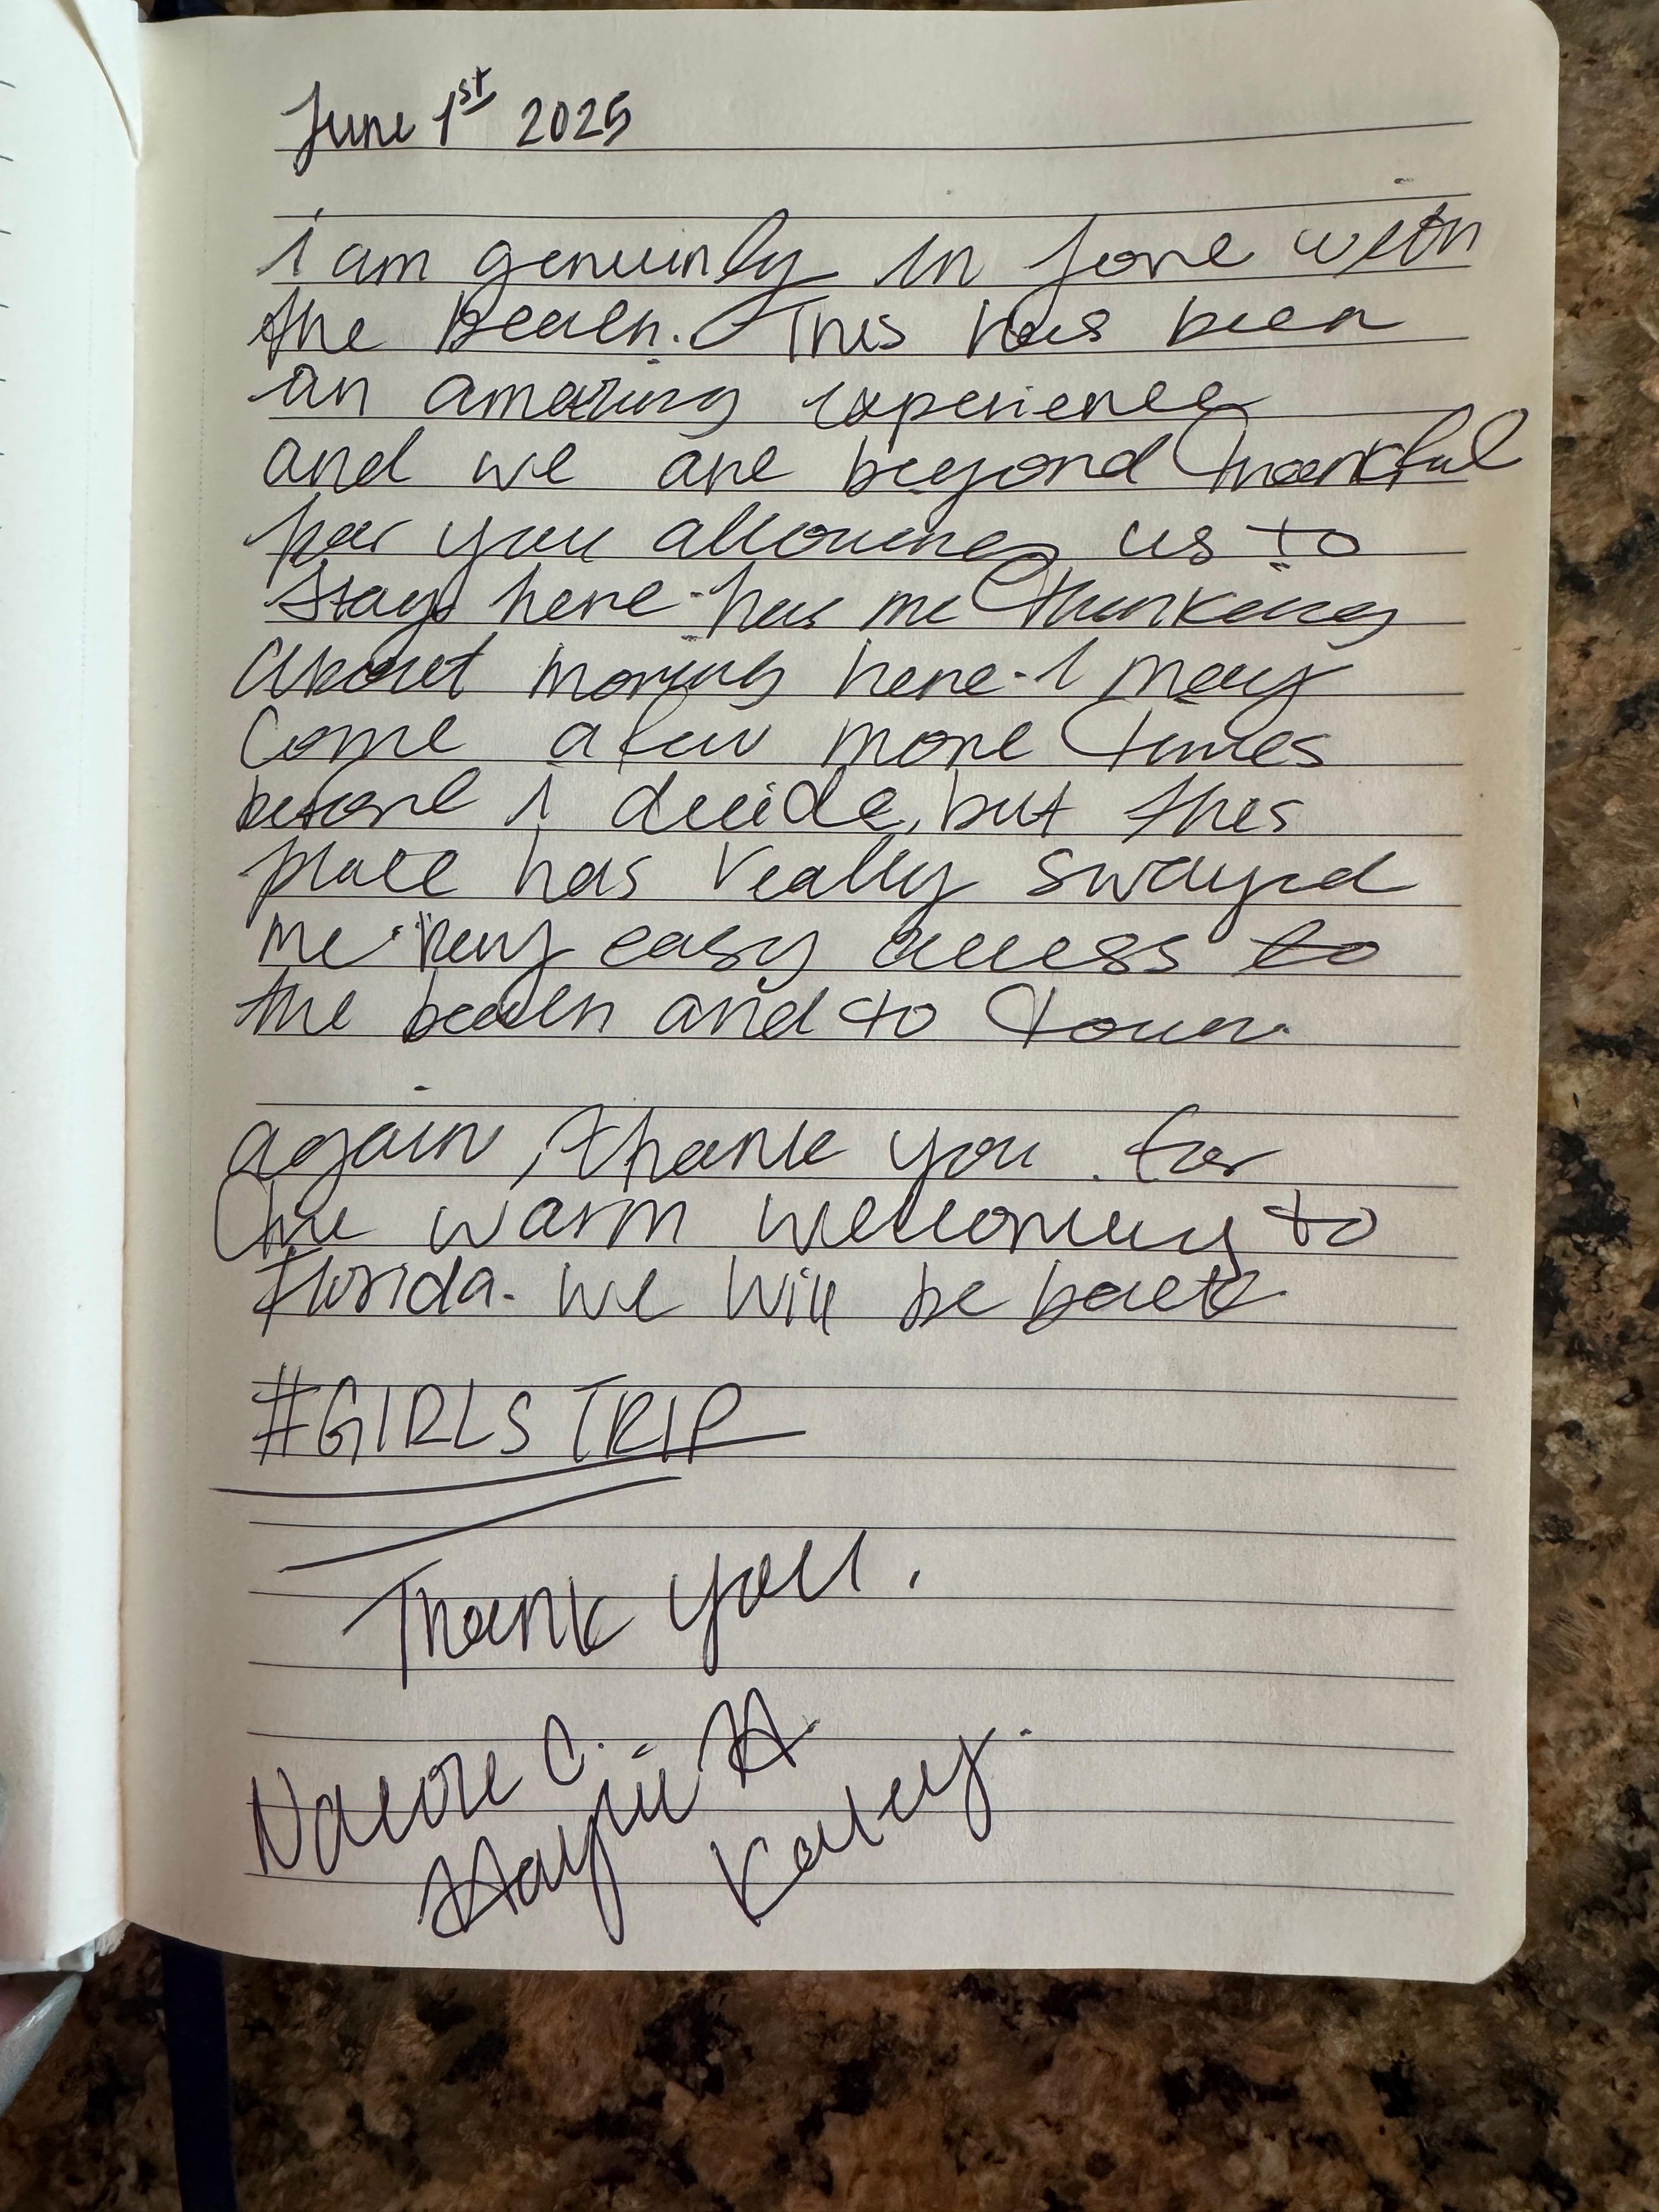 June 1st 2025
i am genuinly in love with
the beach. This has been
an amazing experience
and we are beyond thankful
for you allowing us to
stay here. has me thinking
about moving here. I may
come a few more times
before I decide, but this
place has really swayed
me. very easy access to
the beach and to town.
again, thank you for
the warm welcoming to
Florida. we will be back
#GIRLSTRIP
Thank you.
C.
H